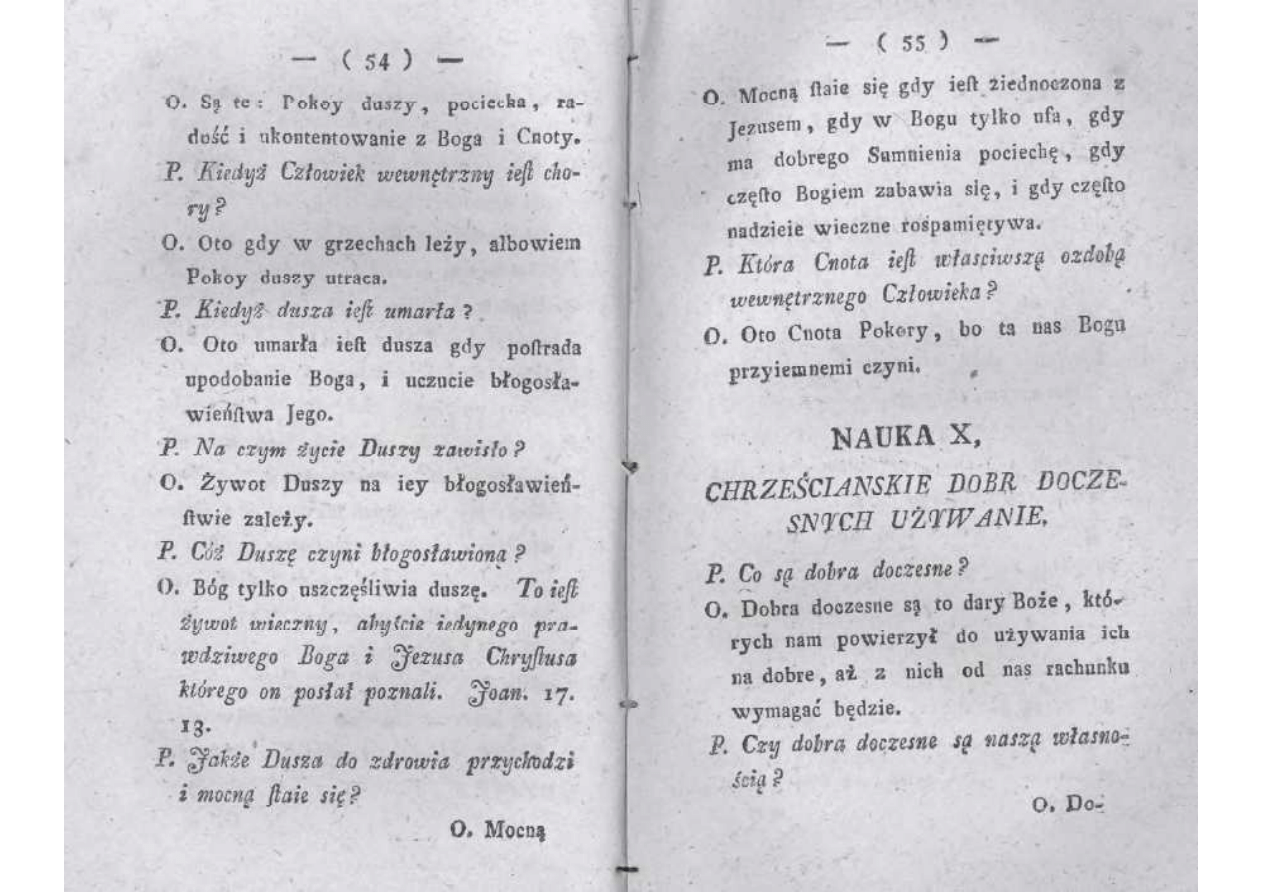 — ( 54 ) —
O. Są te: Pokoy duszy, pociecha, ra-
dość i ukontentowanie z Boga i Cnoty.
P. Kiedyż Człowiek wewnętrzny ieſt cho-
ry?
O. Oto gdy w grzechach leży, albowiem
Pokoy duszy utraca.
P. Kiedyż dusza ieſt umarła?
O. Oto umarła ieſt dusza gdy poſtrada
upodobanie Boga, i uczucie błogosła-
wieńſtwa Jego.
P. Na czym życie Duszy zawisło?
O. Żywot Duszy na iey błogosławień-
ſtwie zależy.
P. Cóż Duszę czyni błogosławioną?
O. Bóg tylko uszczęśliwia duszę. To ieſt
żywot wieczny, abyście iedynego pra-
wdziwego Boga i Jezusa Chryſtusa
którego on posłał poznali. Joan. 17.
13.
P. Jakże Dusza do zdrowia przychodzi
i mocną ſtaie się?
O. Mocną
— ( 55 ) —
O. Mocną ſtaie się gdy ieſt ziednoczona z
Jezusem, gdy w Bogu tylko ufa, gdy
ma dobrego Sumnienia pociechę, gdy
częſto Bogiem zabawia się, i gdy częſto
nadzieie wieczne rośpamiętywa.
P. Która Cnota ieſt własciwszą ozdobą
wewnętrznego Człowieka?
O. Oto Cnota Pokory, bo ta nas Bogu
przyiemnemi czyni.
NAUKA X,
CHRZEŚCIANSKIE DOBR DOCZE-
SNYCH UŻYWANIE.
P. Co są dobra doczesne?
O. Dobra doczesne są to dary Boże, któ-
rych nam powierzył do używania ich
na dobre, aż z nich od nas rachunku
wymagać będzie.
P. Czy dobra doczesne są naszą własno-
ścią?
O. Do-